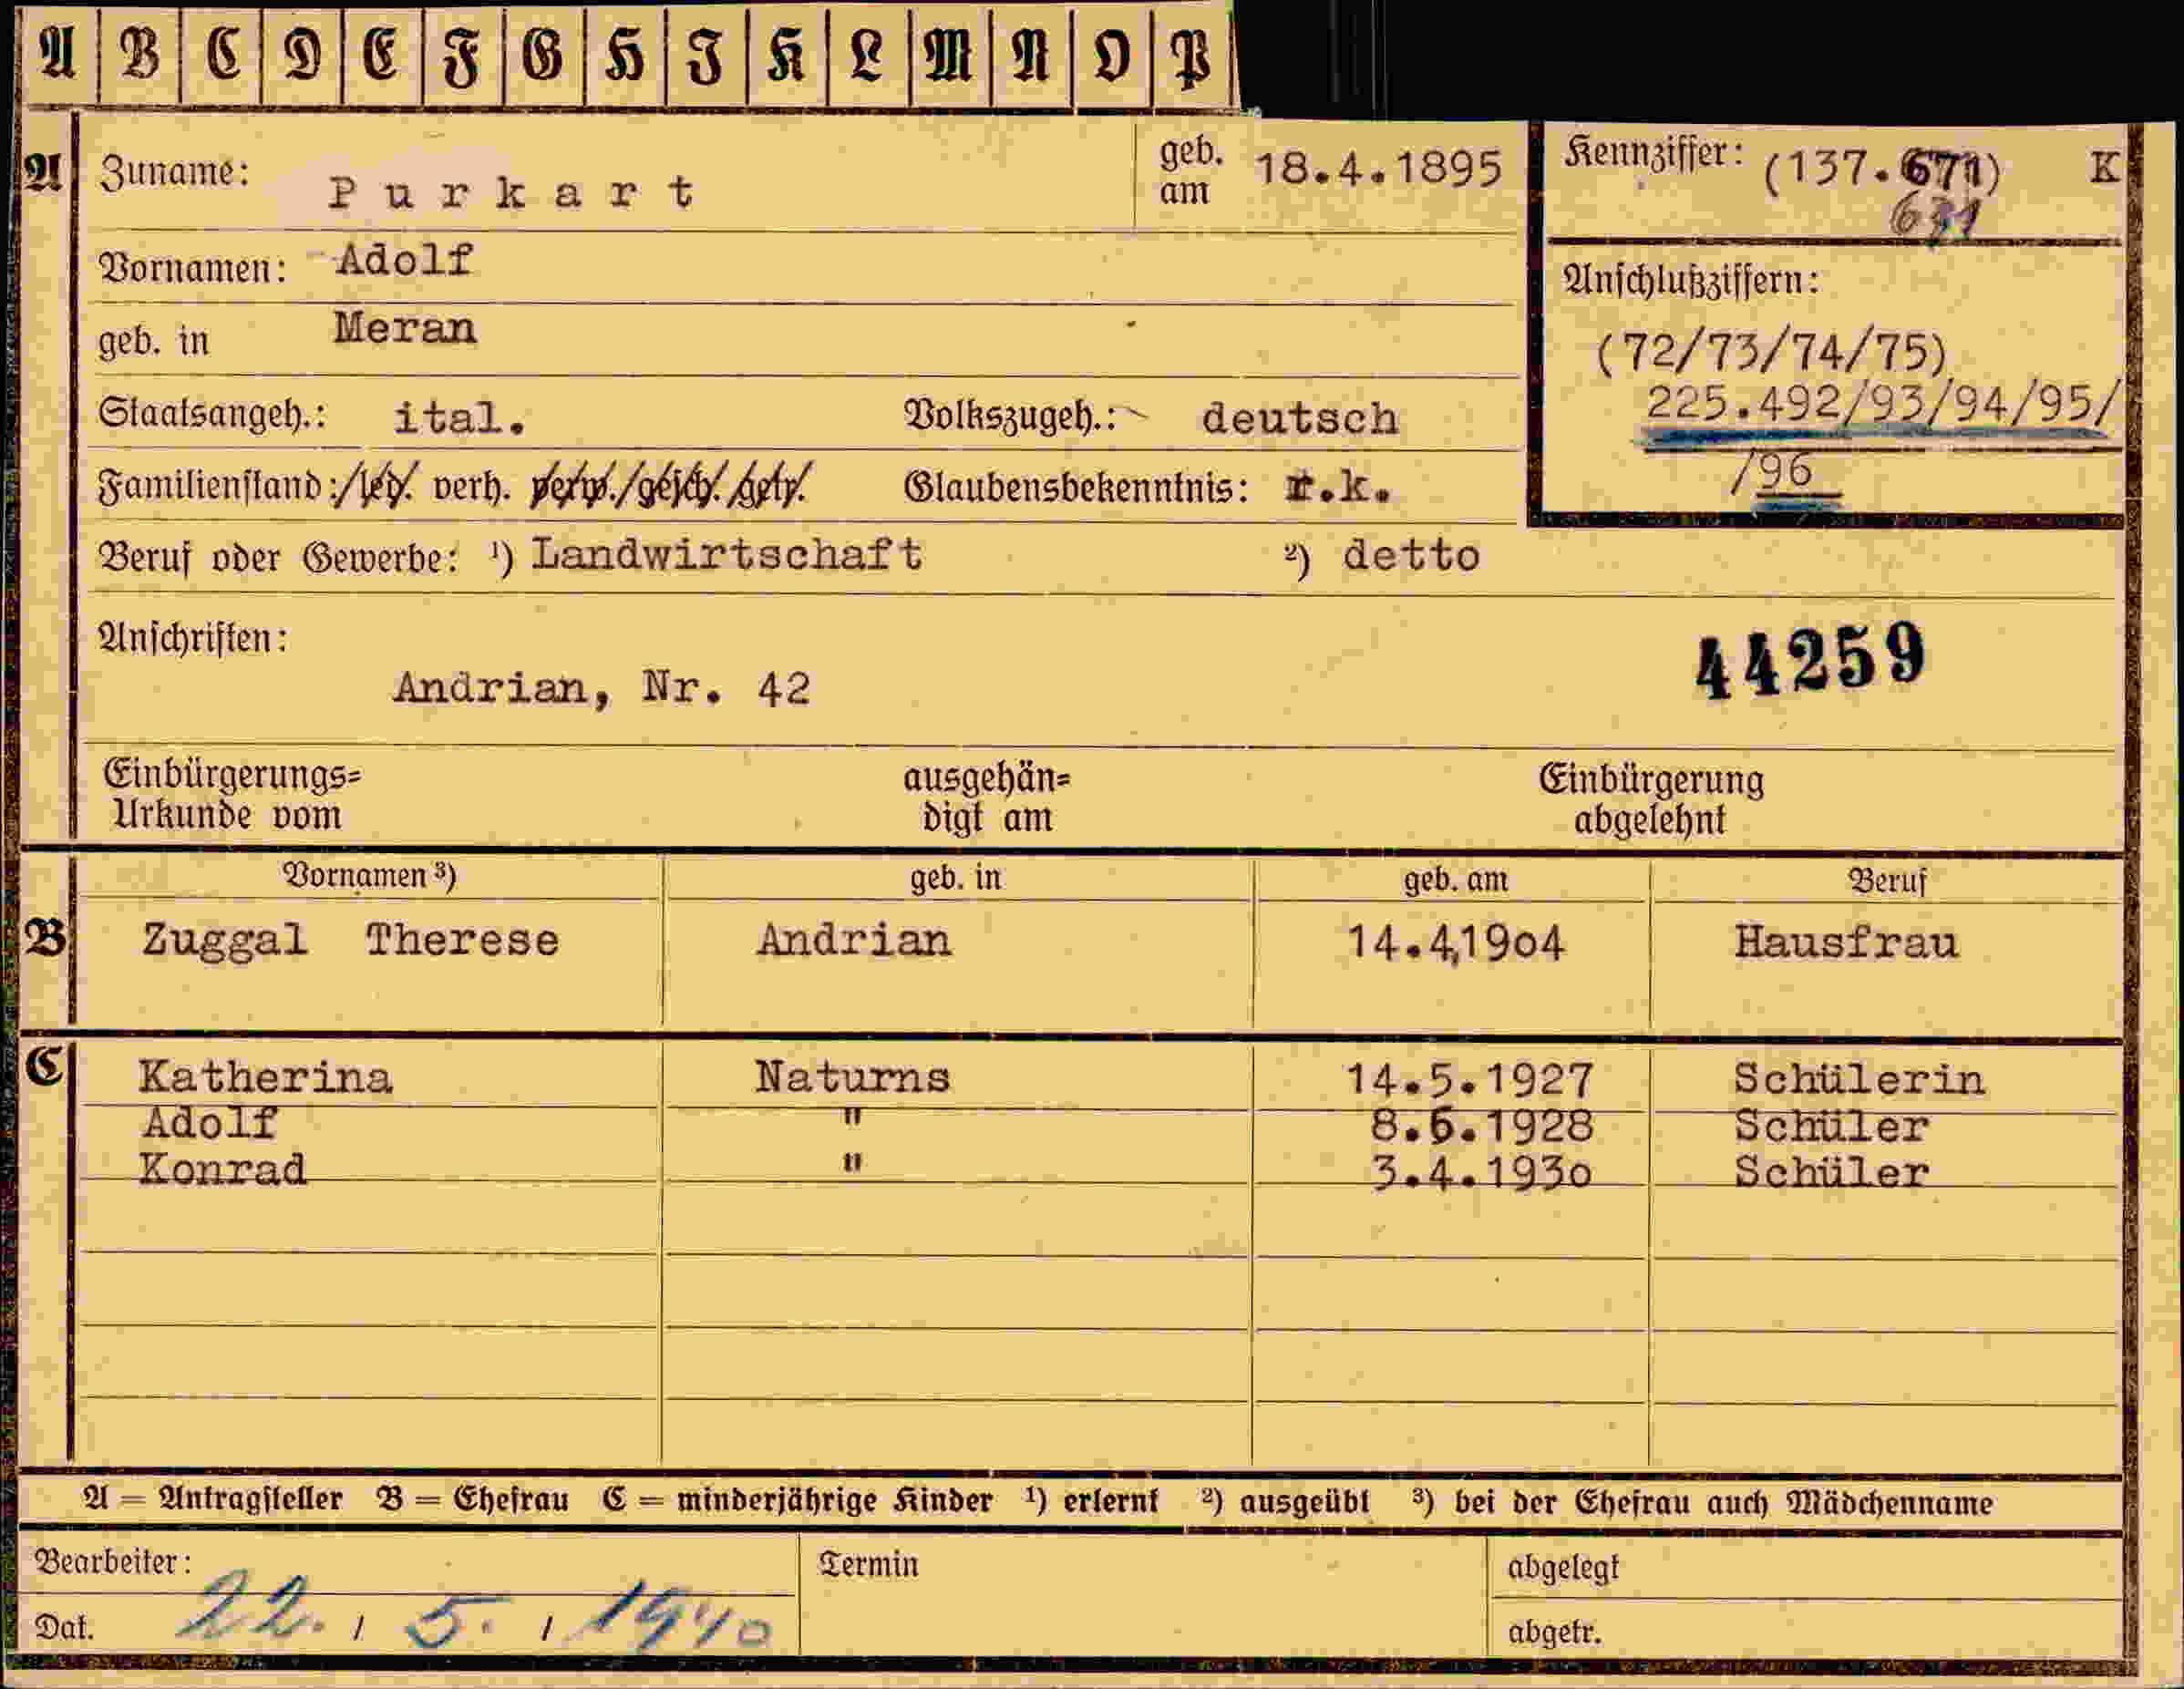 A B C D E F G H I K L M N O P
A Zuname: Purkart geb. am 18.4.1895
Kennziffer: (137.671) K
Vornamen: Adolf
Anschlußziffern:
geb. in Meran
(72/73/74/75)
Staatsangeh.: ital. Volkszugeh.: deutsch
225.492/93/94/95/
/96
Familienstand: /led. verh. verw./gesch./getr. Glaubensbekenntnis: r.k.
Beruf oder Gewerbe: ¹) Landwirtschaft ²) detto
Anschriften:
44259
Andrian, Nr. 42
Einbürgerungs= ausgehän= Einbürgerung
Urkunde vom digt am abgelehnt
Vornamen ³) geb. in geb. am Beruf
B Zuggal Therese Andrian 14.4,1904 Hausfrau
C Katherina Naturns 14.5.1927 Schülerin
Adolf " 8.6.1928 Schüler
Konrad " 3.4.1930 Schüler
A = Antragsteller B = Ehefrau C = minderjährige Kinder ¹) erlernt ²) ausgeübt ³) bei der Ehefrau auch Mädchenname
Bearbeiter: Termin abgelegt
Dat. 22. / 5. / 1940 abgetr.